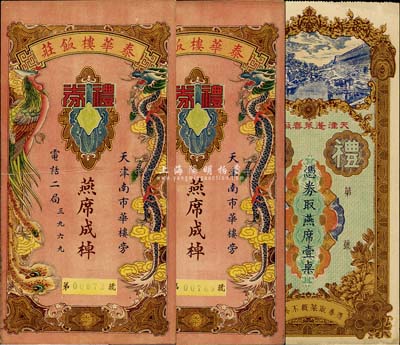 莊飯樓華泰
禮券
天津南市華樓旁
燕席成棹
電話二局三九六九
第00672號
莊飯樓華泰
禮券
天津南市華樓旁
燕席成棹
號
天津蓬萊春
禮
第 號
憑券取燕席壹桌
上海陽明拍賣